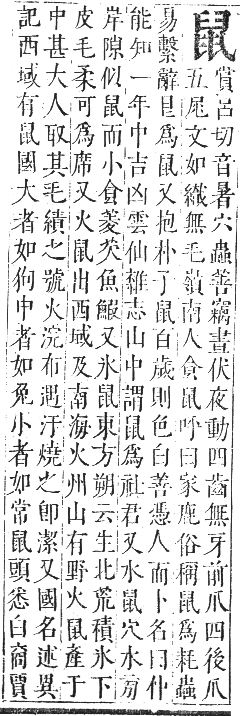 鼠賞呂切音暑穴蟲善竊晝伏夜動四齒無牙前爪四後爪
五尾文如織無毛嶺南人食鼠呼曰家鹿俗稱鼠爲耗蟲
易繫辭艮爲鼠又抱朴子鼠百歲則色白善憑人而卜名曰仲
能知一年中吉凶雲仙雜志山中謂鼠爲社君又水鼠穴水旁
岸隙似鼠而小食菱芡魚鰕又氷鼠東方朔云生北荒積氷下
皮毛柔可爲席又火鼠出西域及南海火州山有野火鼠產于
中甚大人取其毛績之號火浣布遇汙燒之卽潔又國名述異
記西域有鼠國大者如狗中者如兔小者如常鼠頭悉白商賈